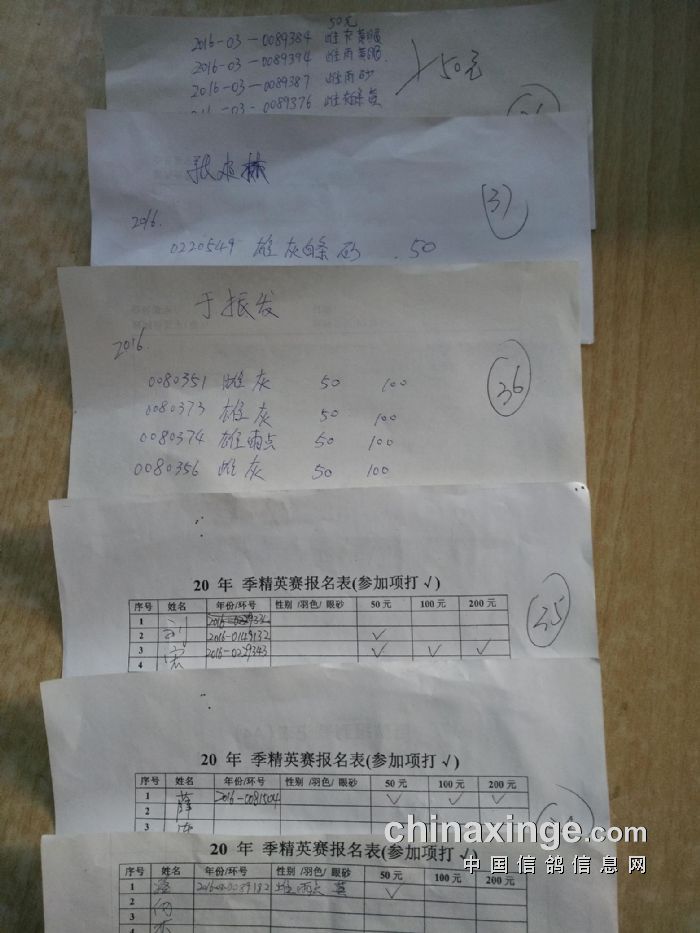 50元
2016-03-0089384 雌
2016-03-0089394 雌雨黄眼
2016-03-0089387 雌雨砂
50元
2016-03-0089376 雌
37
2016.
0220549 雄 灰白条 砂 . 50
于振发
36
2016.
0080351 雌灰 50 100
0080373 雄灰 50 100
0080374 雄雨点 50 100
0080356 雌灰 50 100
20 年 季精英赛报名表(参加项打 √)
序号 姓名 年份/环号 性别 /羽色/ 眼砂 50 元 100 元 200 元
1
2 刘 2016-0149132 √
3 宏 2016-0229343 √ √ √
4
20 年 季精英赛报名表(参加项打 √)
序号 姓名 年份/环号 性别 /羽色/ 眼砂 50 元 100 元 200 元
1 薛 2016-0081504 √ √ √
2
3
chinaxinge.com
中国信鸽信息网
20 年 季精英赛报名表(参加项打 √)
序号 姓名 年份/环号 性别 /羽色/ 眼砂 50 元 100 元 200 元
1 2016-03-0089182 雌 雨点 黄 √
2
3
4